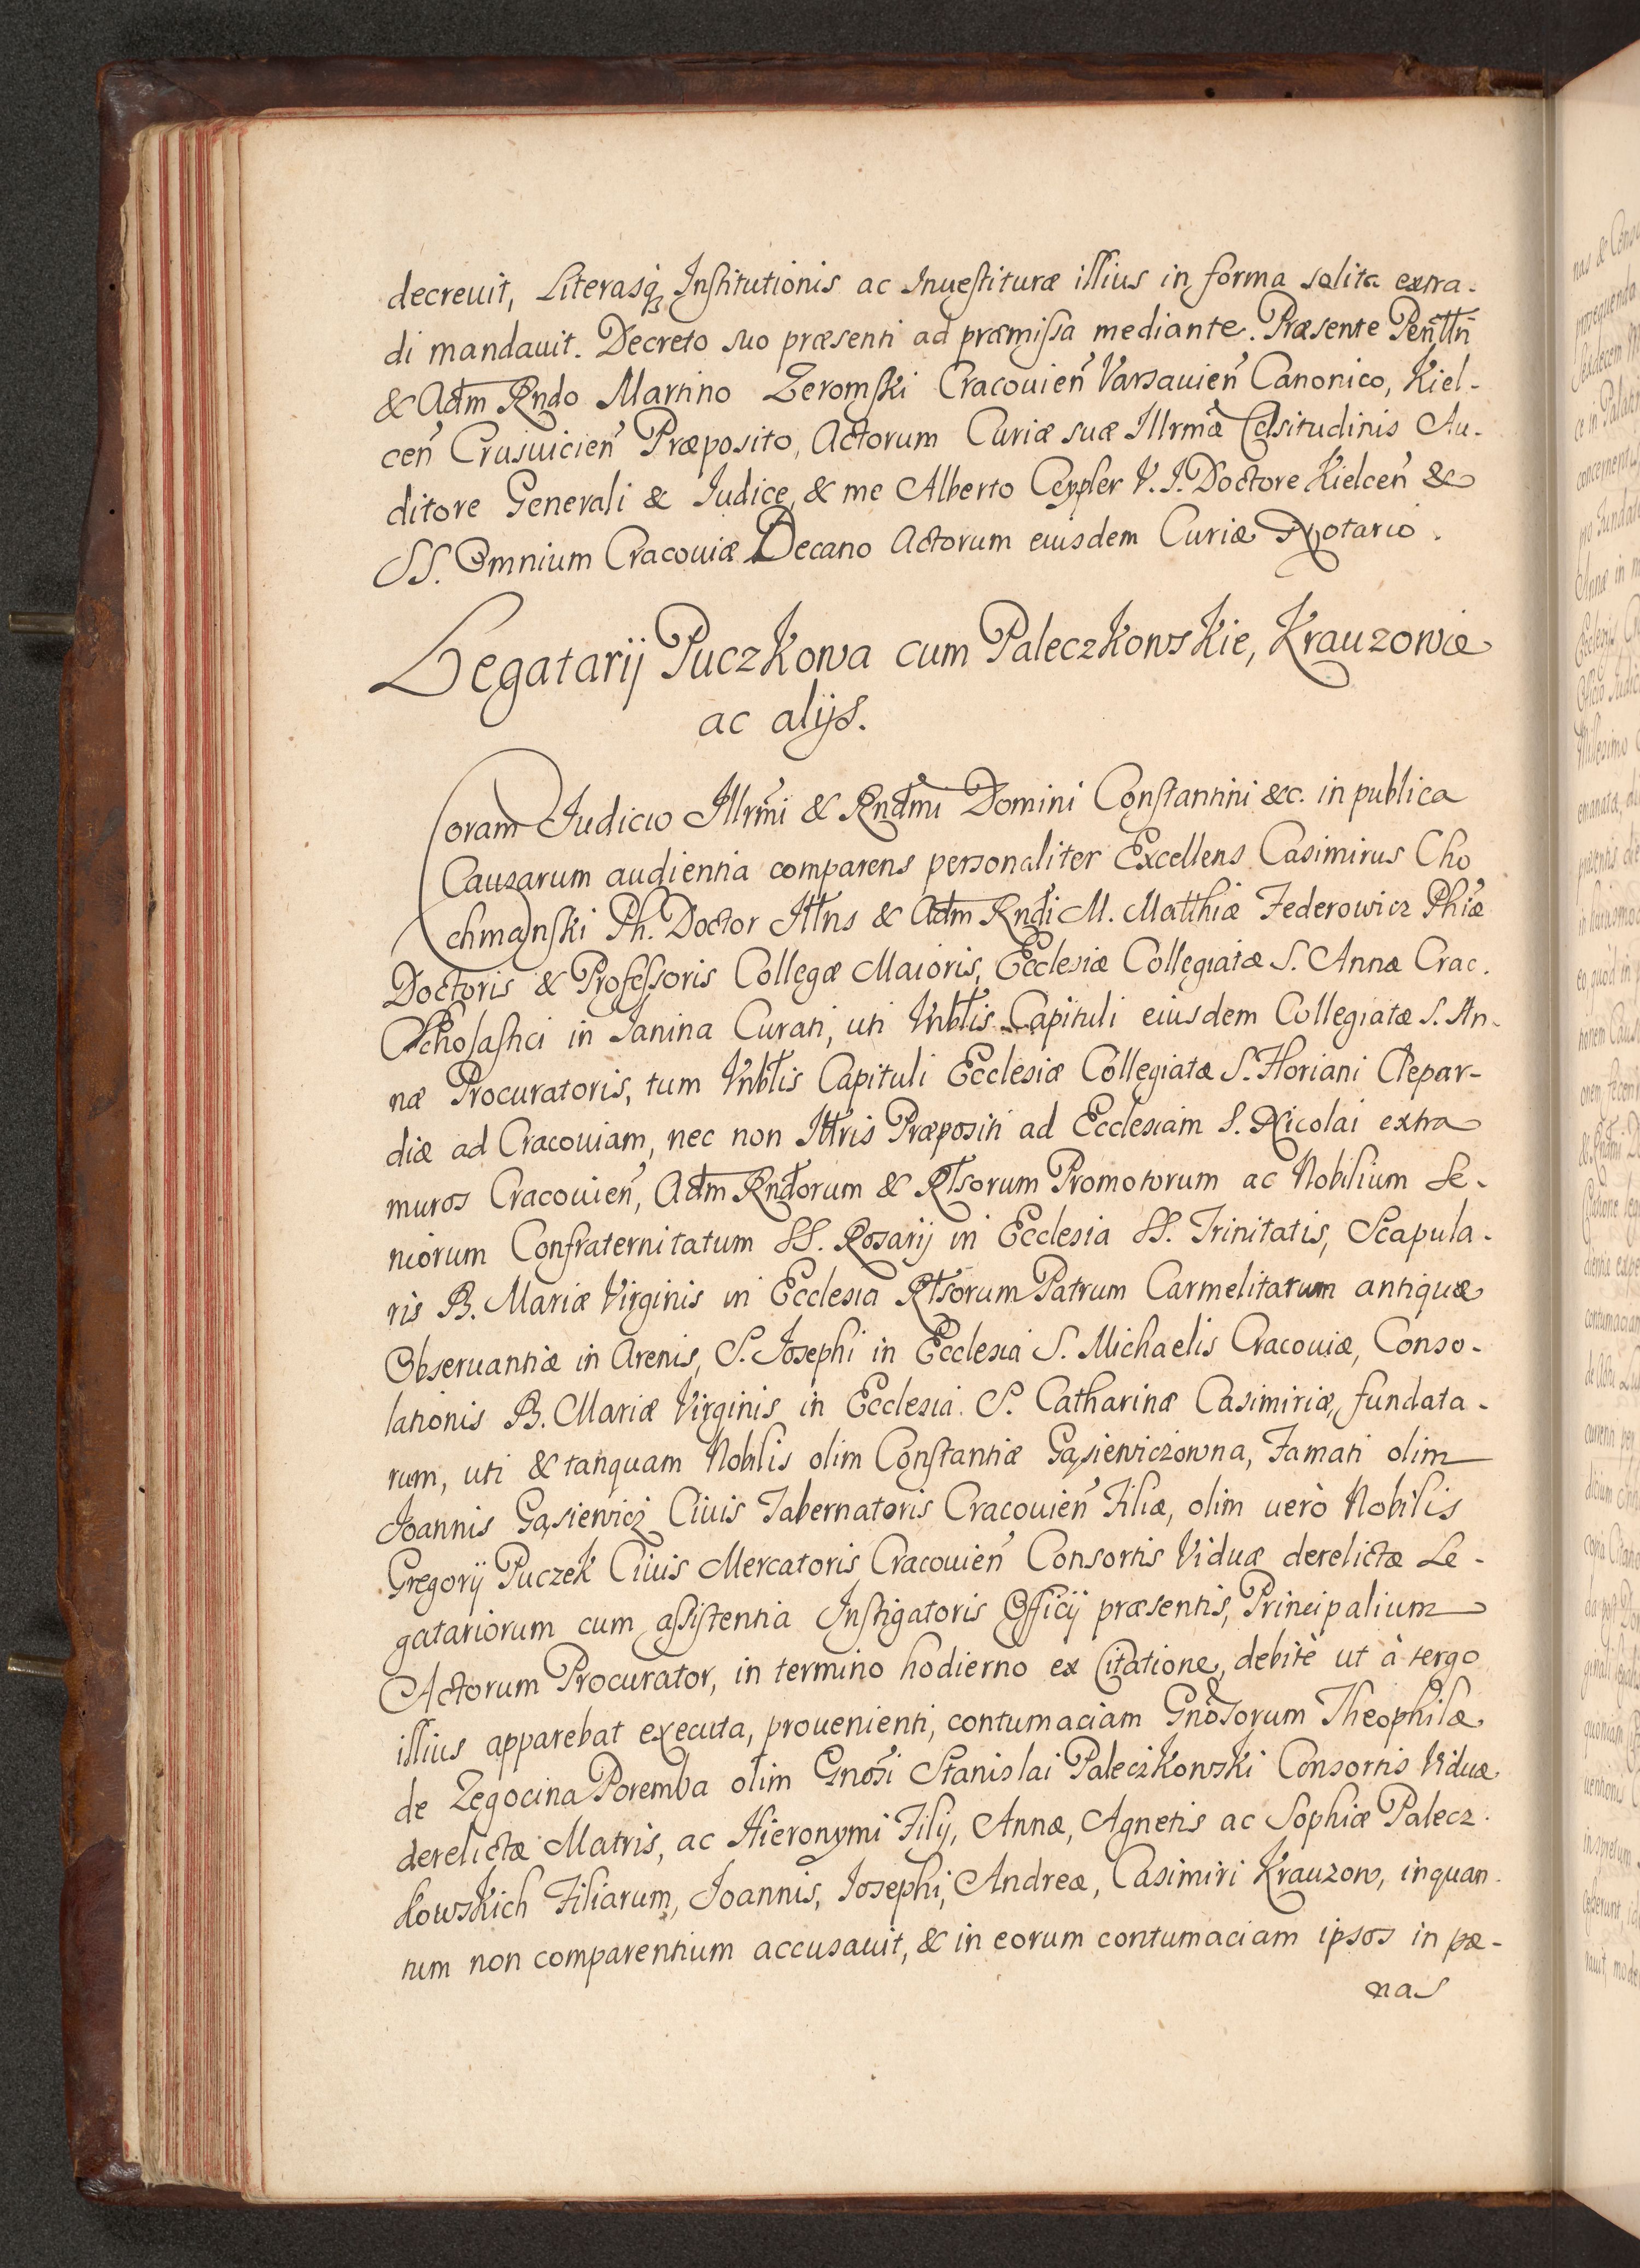 decreuit, Literasq₃ Institutionis ac Inuestituræ illius in forma solita extra-
di mandauit. Decreto suo præsenti ad præmissa mediante. Præsente Penttñ
& Adm Rndo Martino Zeromski Cracouien̄ Varsauien̄ Canonico, Kiel-
cen̄ Crusuicien̄ Præposito, Actorum Curiæ suæ Illrmæ Celsitudinis Au-
ditore Generali & Iudice, & me Alberto Ceypler V. I. Doctore Kielcen̄ &
SS. Omnium Cracouiæ Decano Actorum eiusdem Curiæ Notario.
Legatarij Puczkowa cum Paleczkowskie, Krauzowie
ac alijs.
Coram Iudicio Illrmi & Rndmi Domini Constantini &c. in publica
Causarum audientia comparens personaliter Excellens Casimirus Cho
chmanski Ph. Doctor Ittns & Adm Rndi M. Matthiæ Federowicz Phiæ
Doctoris & Professoris Collegæ Maioris, Ecclesiæ Collegiatæ S. Annæ Crac.
Scholastici in Ianina Curati, uti Vnbtlis Capituli eiusdem Collegiatæ S. An-
næ Procuratoris, tum Vnbtlis Capituli Ecclesiæ Collegiatæ S. Floriani Clepar-
diæ ad Cracouiam, nec non Ittris Præpositi ad Ecclesiam S. Nicolai extra
muros Cracouien̄, Adm Rndorum & Rtsorum Promotorum ac Nobilium Se-
niorum Confraternitatum SS. Rosarij in Ecclesia SS. Trinitatis, Scapula-
ris B. Mariæ Virginis in Ecclesia Rtsorum Patrum Carmelitarum antiquæ
Obseruantiæ in Arenis, S. Iosephi in Ecclesia S. Michaelis Cracouiæ, Conso-
lationis B. Mariæ Virginis in Ecclesia. S. Catharinæ Casimiriæ, fundata-
rum, uti & tanquam Nobilis olim Constantiæ Gąsiewiczowna, Famati olim
Joannis Gąsiewicz Ciuis Tabernatoris Cracouien̄ Filiæ, olim uerò Nobilis
Gregorij Puczek Ciuis Mercatoris Cracouien̄ Consortis Viduæ derelictæ Le-
gatariorum cum assistentia Instigatoris Officij præsentis, Principalium
Actorum Procurator, in termino hodierno ex Citatione, debitè ut à tergo
illius apparebat executa, prouenienti, contumaciam Gnosorum Theophilæ
de Zegocina Poremba olim Gnosi Stanislai Paleczkowski Consortis Viduæ
derelictæ Matris, ac Hieronymi Filij, Annæ, Agnetis ac Sophiæ Palecz-
kowskich Filiarum, Joannis, Iosephi, Andreæ, Casimiri Krauzow, inquan-
tum non comparentium accusauit, & in eorum contumaciam ipsos in pæ-
nas